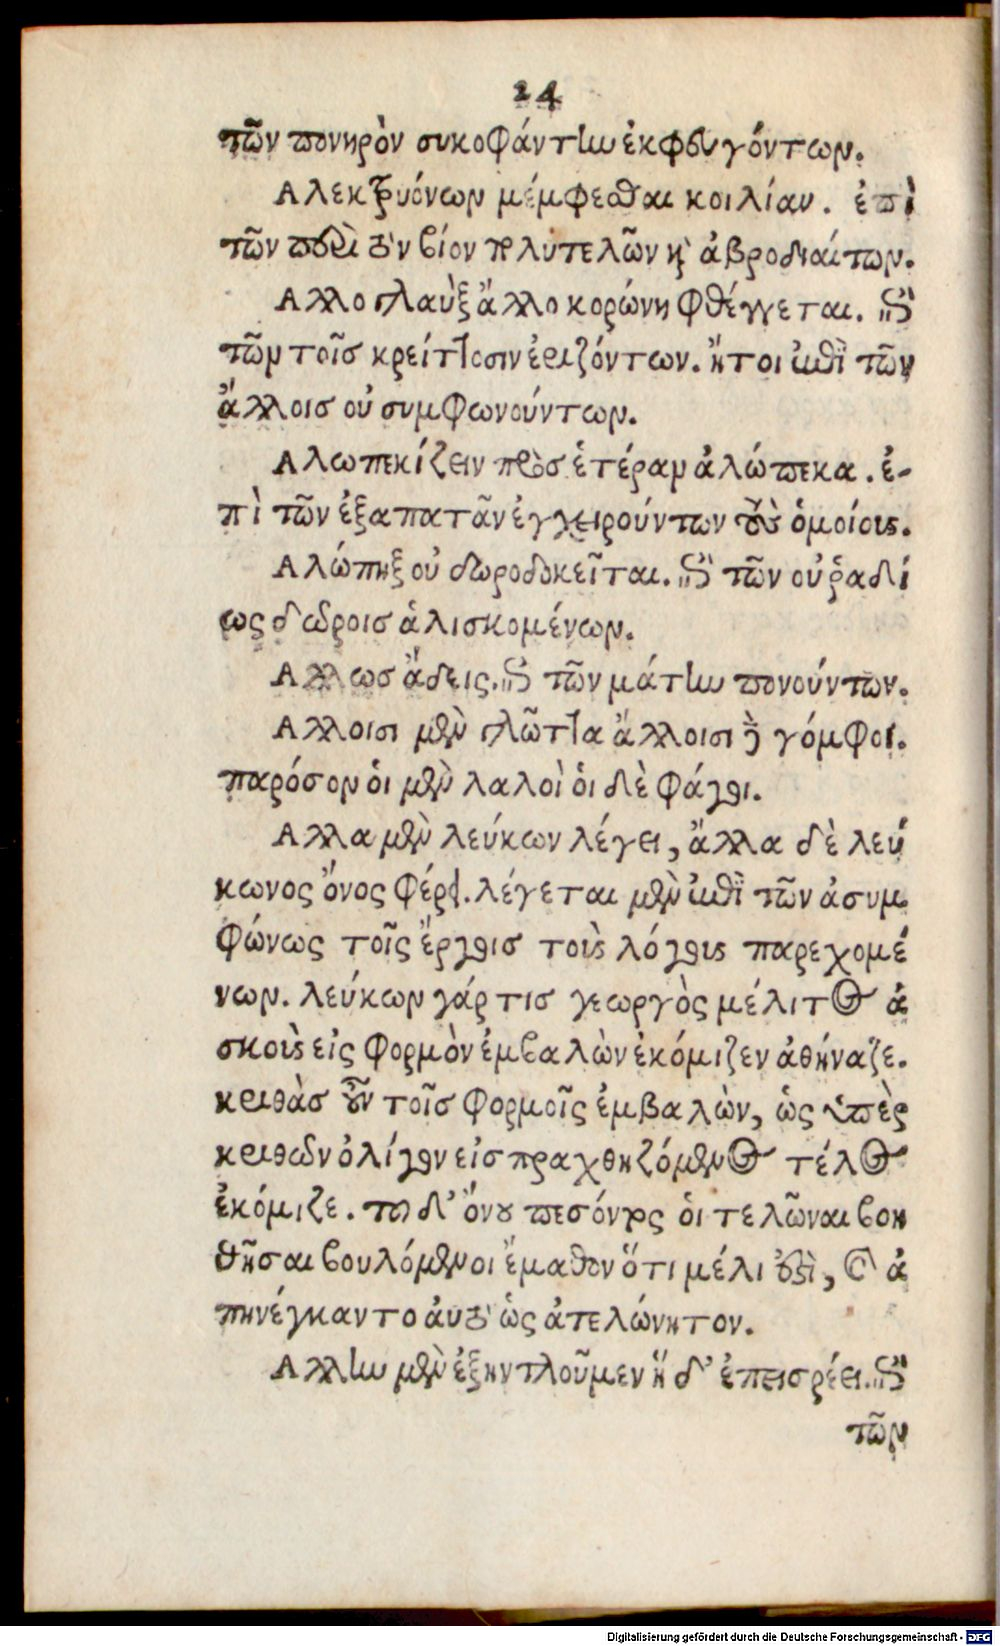 24
τῶν πονηρὸν συκοφάντην ἐκφευγόντων.
Αλεκτρυόνων μέμφεσθαι κοιλίαν. ἐπὶ
τῶν περὶ τὸν βίον πολυτελῶν καὶ ἁβροδιαίτων.
Αλλο γλαὺξ ἄλλο κορώνη φθέγγεται.
τῶν τοῖς κρείττοσιν ἐριζόντων. ἤτοι ἐπὶ τῶν
ἄλλοις οὐ συμφωνούντων.
Αλωπεκίζειν πρὸς ἑτέραν ἀλώπεκα. ἐ-
πὶ τῶν ἐξαπατᾶν ἐγχειρούντων τοὺς ὁμοίους.
Αλώπηξ οὐ δωροδοκεῖται. τῶν οὐ ῥαδί
ως δώροις ἁλισκομένων.
Αλλως ἄδεις. τῶν μάτην πονούντων.
Αλλοισι μὲν γλῶττα ἄλλοισι δὲ γόμφοι.
παρόσον οἱ μὲν λαλοὶ οἱ δὲ φάγοι.
Αλλα μὲν λεύκων λέγει, ἄλλα δὲ λεύ
κωνος ὄνος φέρει. λέγεται μὲν ἐπὶ τῶν ἀσυμ
φώνως τοῖς ἔργοις τοὺς λόγους παρεχομέ
νων. λεύκων γάρ τις γεωργὸς μέλιτος ἀ
σκοὺς εἰς φορμὸν ἐμβαλὼν ἐκόμιζεν ἀθήναζε.
κριθὰς οὖν τοῖς φορμοῖς ἐμβαλὼν, ὡς ὑπὲρ
κριθων ὀλίγον εἰσπραχθηζόμενος τέλος
ἐκόμιζε. του δ' ὄνου πεσόντος οἱ τελῶναι βοη
θῆσαι βουλόμενοι ἔμαθον ὅτι μέλι ἐστὶ, καὶ ἀ
πηνέγκαντο ἀυτὸ ὡς ἀτελώνητον.
Αλλην μὲν ἐξηντλοῦμεν ἥ δ' ἐπεισρέει.
τῶν
Digitalisierung gefördert durch die Deutsche Forschungsgemeinschaft - DFG